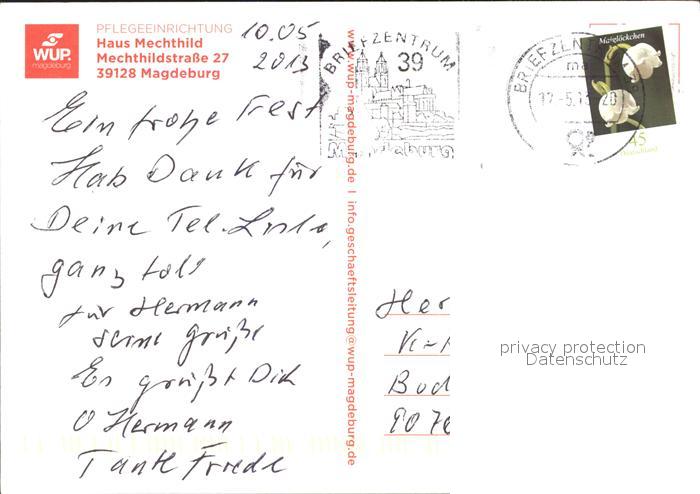 WUP.
magdeburg
PFLEGEEINRICHTUNG
Haus Mechthild
Mechthildstraße 27
39128 Magdeburg
10.05
2013
Ein frohe Fest
Hab Dank für
Deine Tel. Liste,
ganz toll
für Hermann
seine Grüße
Es grüßt Dich
O Hermann
Tante Friede
www.wup-magdeburg.de | info.geschaeftsleitung@wup-magdeburg.de
BRIEFZENTRUM
39
BRIEFZENT
Maiglöckchen
45
Deutschland
Her
Bud
privacy protection
Datenschutz